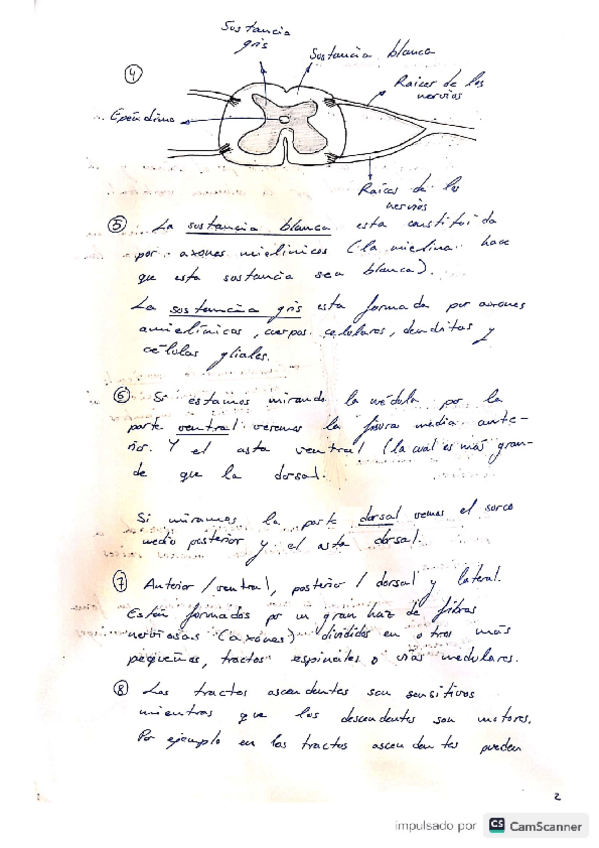 Sustancia
gris
Sustancia blanca
④
Raices de los
nervios
Epéndimo
Raices de los
nervios
⑤ La sustancia blanca esta constituida
por axones mielínicos (la mielina hace
que esta sustancia sea blanca).
La sustancia gris esta formada por axones
amielínicos, cuerpos celulares, dendritas y
células gliales.
⑥ Si estamos mirando la médula por la
parte ventral veremos la fisura media ante-
rior. Y el asta ventral (la cual es más gran-
de que la dorsal.
Si miramos la parte dorsal vemos el surco
medio posterior y el asta dorsal.
⑦ Anterior / ventral, posterior / dorsal y lateral.
Están formados por un gran haz de fibras
nerviosas (axones) divididos en otros más
pequeños, tractos espinales o vías medulares.
⑧ Los tractos ascendentes son sensitivos
mientras que los descendentes son motores.
Por ejemplo en los tractos ascendentes pueden
2
impulsado por CS CamScanner